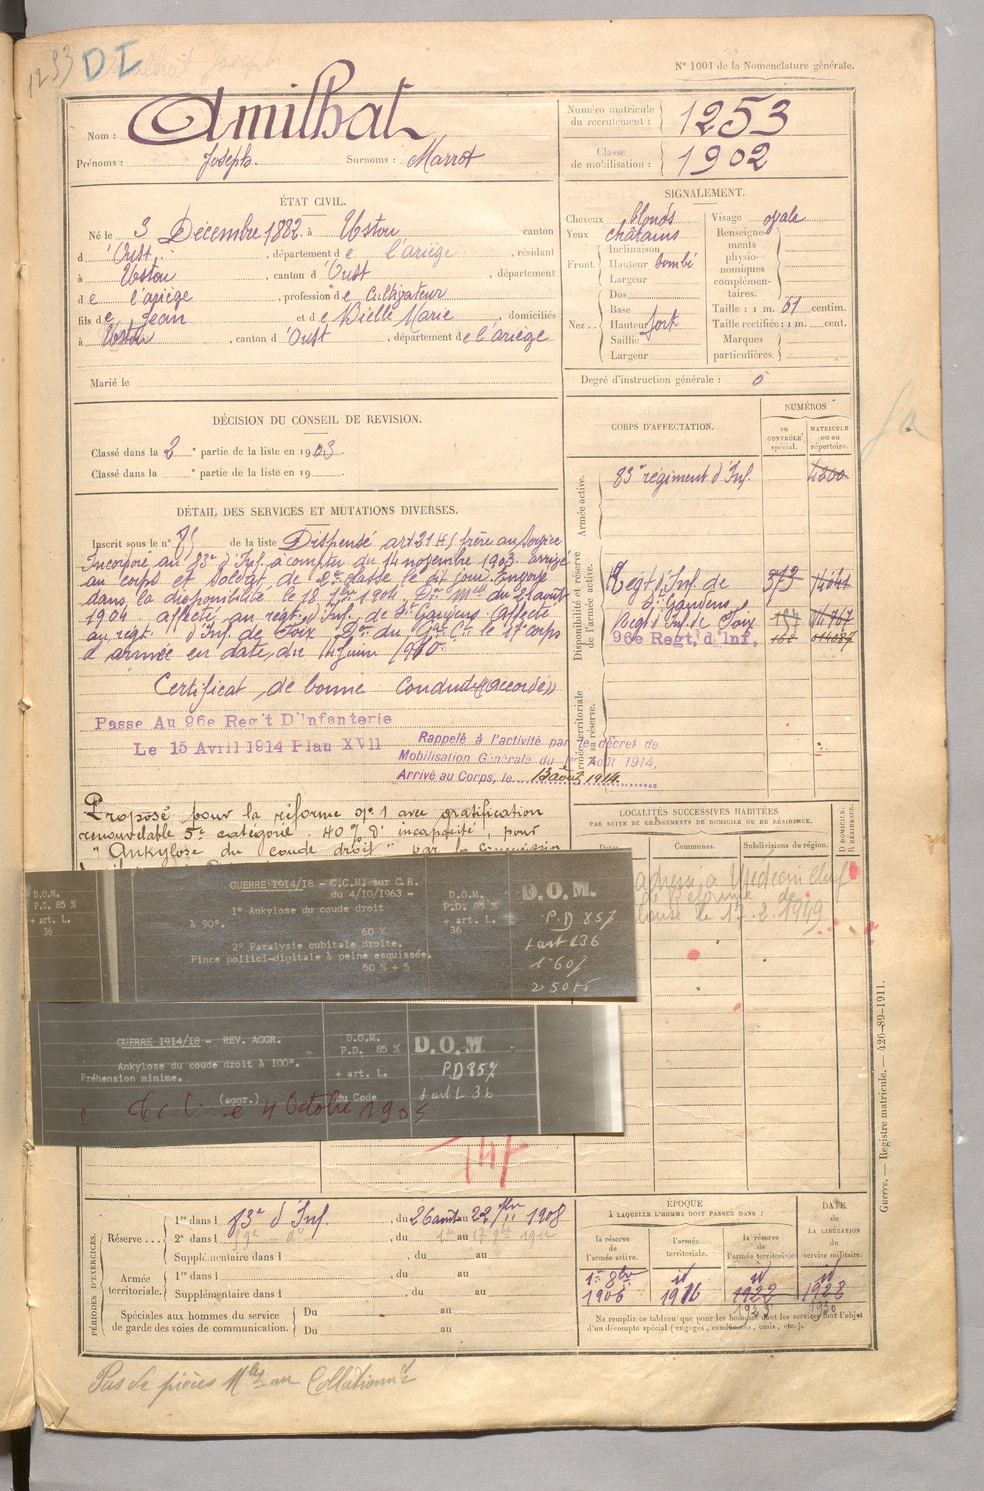 1253 D I
N° 1001 de la Nomenclature générale.
Nom : Amilhat
Prénoms : Joseph. Surnoms : Marrot
Numéro matricule du recrutement : 1253
Classe de mobilisation : 1902
ÉTAT CIVIL.
Né le 3 Décembre 1882 à Ustou canton
d'Oust, département de l'ariège, résidant
à Ustou, canton d'Oust, département
de l'ariège, profession de Cultivateur
fils de Jean et de Vielle Marie, domiciliés
à Ustou, canton d'Oust, département de l'ariège
Marié le
SIGNALEMENT.
Cheveux blonds
Yeux châtains
Front Inclinaison
Hauteur bombé
Largeur
Nez.. Dos
Base
Hauteur fort
Saillie
Largeur
Visage ovale
Renseignements physionomiques complémentaires.
Taille : 1 m. 61 centim.
Taille rectifiée : 1 m. cent.
Marques particulières.
Degré d'instruction générale : 0
DÉCISION DU CONSEIL DE REVISION.
Classé dans la 2e partie de la liste en 1903.
Classé dans la e partie de la liste en 19
CORPS D'AFFECTATION.
NUMÉROS
au CONTRÔLE spécial.
MATRICULE ou au répertoire.
Armée active.
83e régiment d'Inf. 4600
Disponibilité et réserve de l'armée active.
Régt d'Inf. de St Gaudens 373
Régt d'Inf. de Foix
96e Regt, d'Inf,
Armée territoriale et sa réserve.
DÉTAIL DES SERVICES ET MUTATIONS DIVERSES.
Inscrit sous le n° de la liste Dispensé art 21 frère au service
Incorporé au 83e d'Inf. à compter du 14 novembre 1903. arrivé
au corps et soldat de 2e classe le dit jour. Envoyé
dans la disponibilité le 18 7bre 1904. Don Melle du 21 août
1904. affecté au régt d'Inf. de St Gaudens. Affecté
au régt. d'Inf. de Foix. Don du Gal Ct le 17e corps
d'armée en date du 14 Juin 1910.
Certificat de bonne conduite "Accordé"
Passe Au 96e Reg't D'Infanterie
Le 15 Avril 1914 Plan XVII
Rappelé à l'activité par le décret de
Mobilisation Générale du 1er Août 1914,
Arrivé au Corps, le 13 août 1914.
Proposé pour la réforme n° 1 avec gratification
renouvelable 5e catégorie. 40 % d'incapacité, pour
"Ankylose du coude droit" par la Commission
LOCALITÉS SUCCESSIVES HABITÉES
PAR SUITE DE CHANGEMENTS DE DOMICILE OU DE RÉSIDENCE.
Communes. Subdivisions de région. D DOMICILE. R RÉSIDENCE.
adressé à Médecin Chef
D.O.M.
P.D. 85 %
+ art. L.
36
GUERRE 1914/18 - C.C.M. sur C.R.
du 4/10/1963 -
1° Ankylose du coude droit
à 90°.
60 %
2° Paralysie cubitale droite.
Pince pollici-digitale à peine esquissée.
50 % + 5
D.O.M.
P.D. 85 %
+ art. L.
36
D.O.M.
P.D 85%
+ art L 36
1° 60%
2° 50+5
GUERRE 1914/18 - REV. AGGR.
Ankylose du coude droit à 100°.
Préhension minime.
(aggr.)
D.O.M.
P.D. 85 %
+ art. L.
du Code
D.O.M
P.D 85%
+ art L 36
le 4 Octobre
PÉRIODES D'EXERCICES.
Réserve.... 1re dans l 83e d'Inf., du 26 août au 22 7bre 1908
2e dans l, du au
Supplémentaire dans l, du au
Armée territoriale. 1re dans l, du au
Supplémentaire dans l, du au
Spéciales aux hommes du service de garde des voies de communication. Du au
Du au
ÉPOQUE
À LAQUELLE L'HOMME DOIT PASSER DANS :
la réserve de l'armée active. l'armée territoriale. la réserve de l'armée territoriale.
DATE de LA LIBÉRATION du service militaire.
1er 8bre 1906 id 1916 id 1922 id 1928
Ne remplir ce tableau que pour les hommes dont les services font l'objet
d'un décompte spécial (engagés, condamnés, omis, etc.).
Guerre. — Registre matricule. 426-89-1911.
Pas de pièces Mles au Collationné